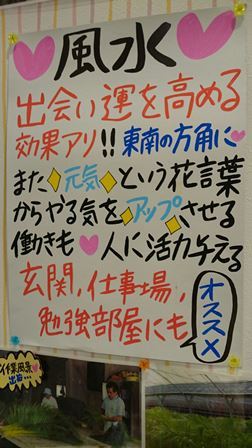 風水
出会い運を高める
効果アリ!!東南の方角に
また元気という花言葉
からやる気をアップさせる
働きも 人に活力与える
玄関,仕事場,
勉強部屋にも
オススメ